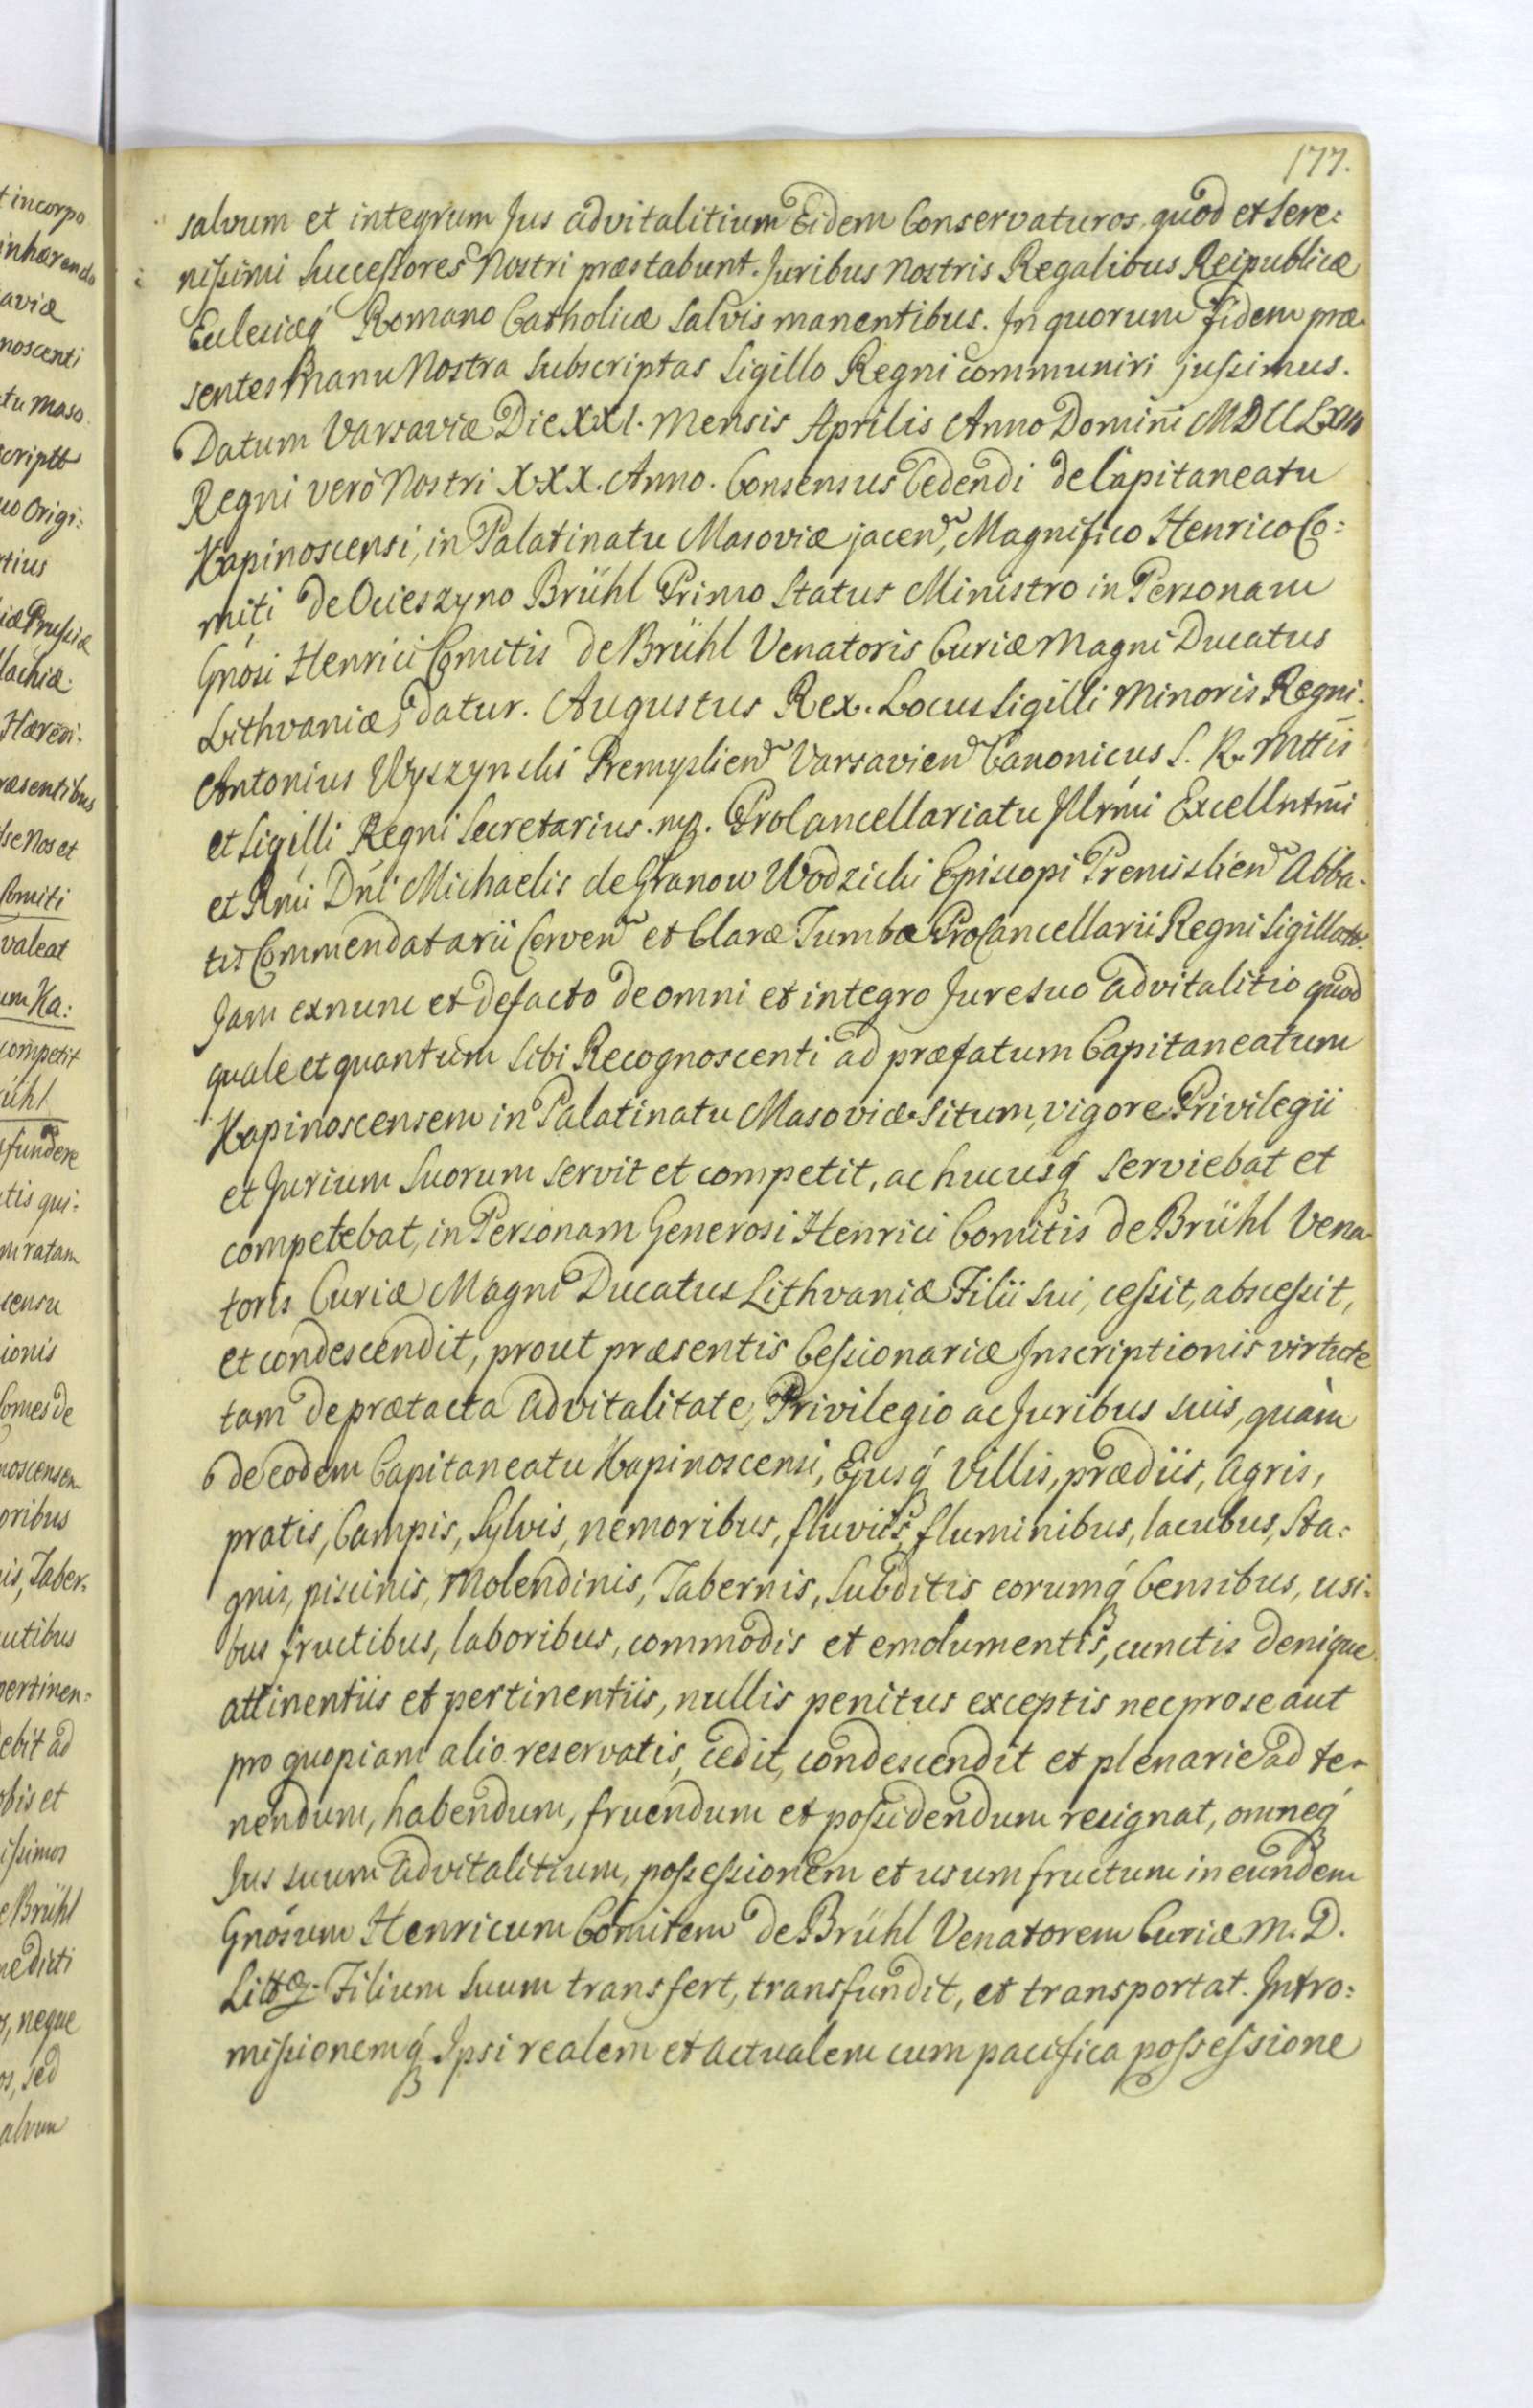 177.
salvum et integrum Jus advitalitium Eidem Conservaturos, quod et Sere:
nissimi Successores Nostri præstabunt. Juribus Nostris Regalibus Reipublicæ
Ecclesiæq́ Romano Catholicæ Salvis manentibus. In quorum fidem præ-
sentes Manu Nostra Subscriptas Sigillo Regni communiri jussimus.
Datum Varsaviæ Die XXI. Mensis Aprilis Anno Domini MDCCLXIII
Regni verò Nostri XXX. Anno. Consensus Cedendi de Capitaneatu
Kapinoscensi, in Palatinatu Masoviæ jacen, Magnifico Henrico Co:
miti de Ocieszyno Brühl Primo Status Ministro in Personam
Gnosi Henrici Comitis de Brühl Venatoris Curiæ Magni Ducatus
Lithvaniæ, datur. Augustus Rex. Locus Sigilli Minoris Regni.
Antonius Wyszynski Premyslien Varsavien Canonicus S. R. Mttis
et Sigilli Regni Secretarius. mp. ProCancellariatu Illrmi Excellntmi
et Rmi Dni Michaelis de Granow Wodzicki Episcopi Premislien Abba-
tis Commendatarii Cerven et Claræ Tumbæ ProCancellarii Regni Sigillatt.
Jam exnunc et defacto de omni et integro Jure suo advitalitio quod
quale et quantum Sibi Recognoscenti ad præfatum Capitaneatum
Kapinoscensem in Palatinatu Masoviæ Situm, vigore Privilegii
et Jurium Suorum servit et competit, ac hucusq́ serviebat et
competebat, in Personam Generosi Henrici Comitis de Brühl Vena-
toris Curiæ Magni Ducatus Lithvaniæ Filii sui, cessit, abscessit,
et condescendit, prout præsentis Cessionariæ Inscriptionis virtute
tam de prætacta advitalitate, Privilegio ac Juribus suis, quàm
de eodem Capitaneatu Kapinoscensi, Ejusq́ Villis, prædiis, Agris,
pratis, Campis, Sylvis, nemoribus, fluviis, fluminibus, lacubus, Sta:
gnis, piscinis, Molendinis, Tabernis, Subditis eorumq́ Censibus, usi:
bus fructibus, laboribus, commodis et emolumentis, cunctis denique
attinentiis et pertinentiis, nullis penitus exceptis nec pro se aut
pro quopiam alio reservatis, cedit, condescendit et plenarie ad te-
nendum, habendum, fruendum et possidendum resignat, omneq́
Jus suum advitalitium, possessionem et usumfructum in eundem
Gnosum Henricum Comitem de Brühl Venatorem Curiæ M. D.
Littæ. Filium Suum transfert, transfundit, et transportat. Intro:
missionemq́ Ipsi realem et actualem cum pacifica possessione